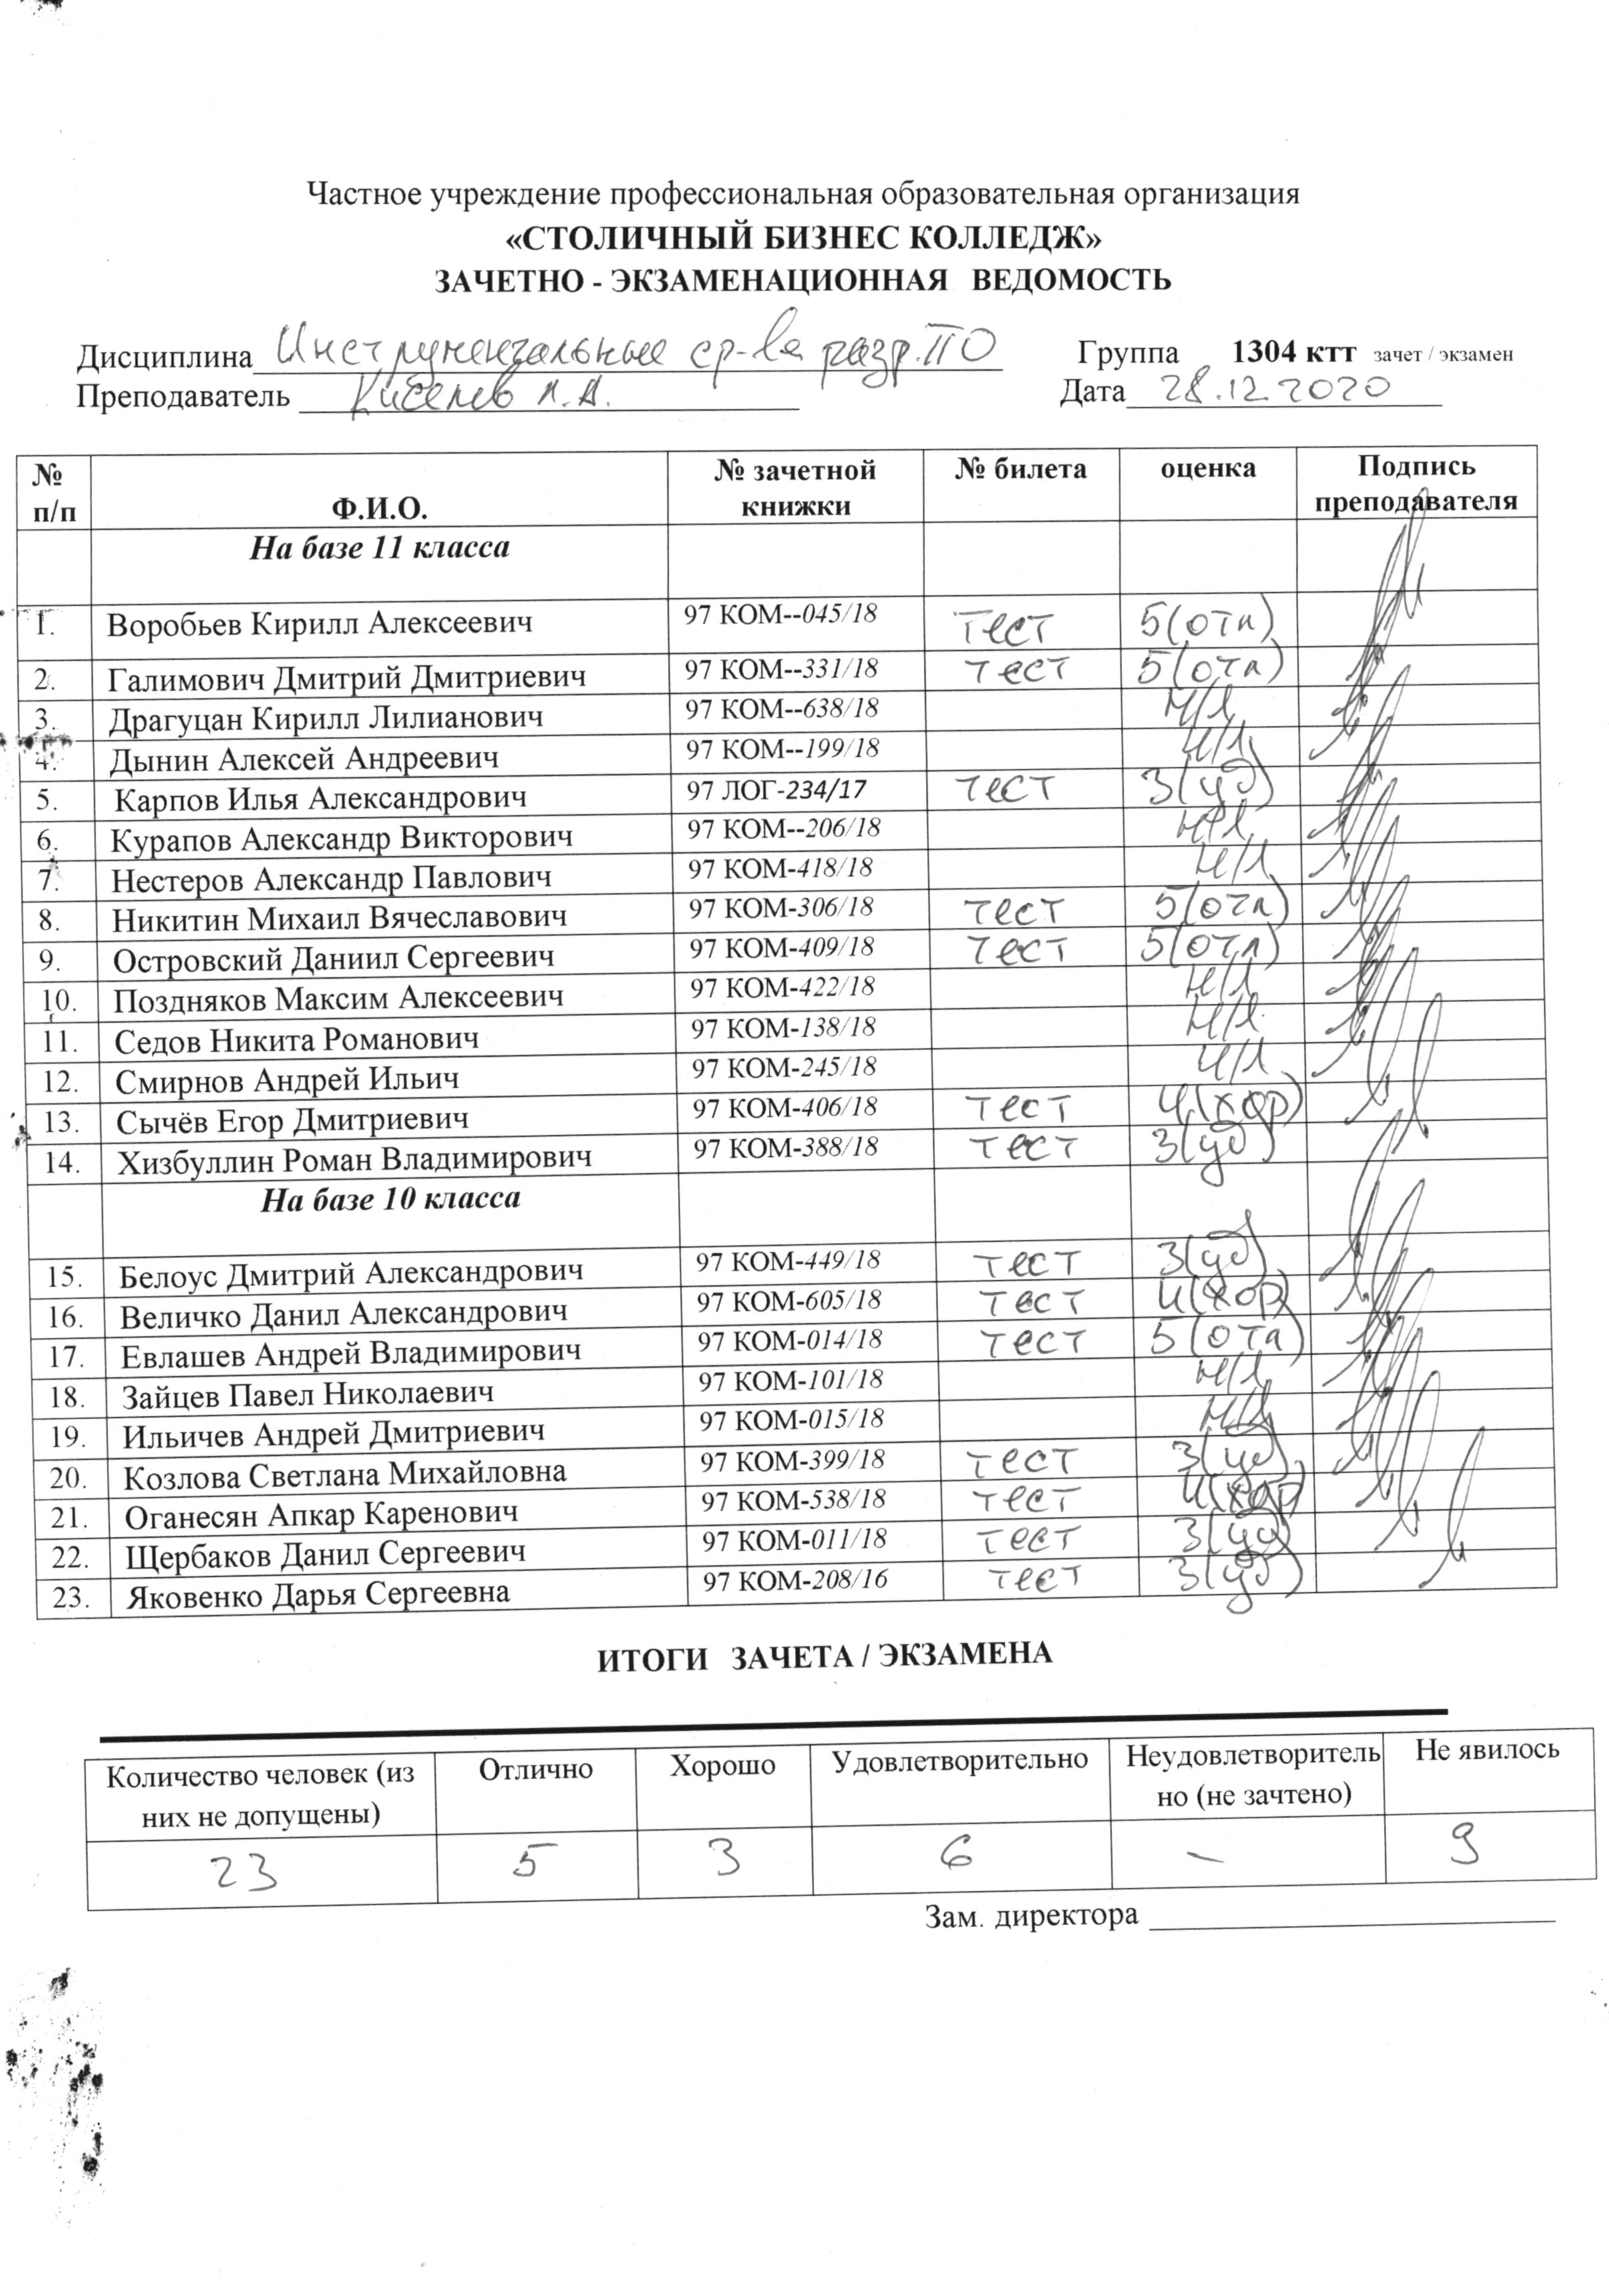 Частное учреждение профессиональная образовательная организация
«СТОЛИЧНЫЙ БИЗНЕС КОЛЛЕДЖ»
ЗАЧЕТНО - ЭКЗАМЕНАЦИОННАЯ ВЕДОМОСТЬ
Дисциплина Инструментальные ср-ва разр. ПО Группа 1304 ктт зачет / экзамен
Преподаватель Дата 28.12.2020
№ п/п Ф.И.О. № зачетной книжки № билета оценка Подпись преподавателя
На базе 11 класса
1. Воробьев Кирилл Алексеевич 97 КОМ--045/18 тест 5(отл)
2. Галимович Дмитрий Дмитриевич 97 КОМ--331/18 тест 5(отл)
3. Драгуцан Кирилл Лилианович 97 КОМ--638/18 н/я
4. Дынин Алексей Андреевич 97 КОМ--199/18 н/я
5. Карпов Илья Александрович 97 ЛОГ-234/17 тест 3(уд)
6. Курапов Александр Викторович 97 КОМ--206/18 н/я
7. Нестеров Александр Павлович 97 КОМ-418/18 н/я
8. Никитин Михаил Вячеславович 97 КОМ-306/18 тест 5(отл)
9. Островский Даниил Сергеевич 97 КОМ-409/18 тест 5(отл)
10. Поздняков Максим Алексеевич 97 КОМ-422/18 н/я
11. Седов Никита Романович 97 КОМ-138/18 н/я
12. Смирнов Андрей Ильич 97 КОМ-245/18 н/я
13. Сычёв Егор Дмитриевич 97 КОМ-406/18 тест 4(хор)
14. Хизбуллин Роман Владимирович 97 КОМ-388/18 тест 3(уд)
На базе 10 класса
15. Белоус Дмитрий Александрович 97 КОМ-449/18 тест 3(уд)
16. Величко Данил Александрович 97 КОМ-605/18 тест 4(хор)
17. Евлашев Андрей Владимирович 97 КОМ-014/18 тест 5(отл)
18. Зайцев Павел Николаевич 97 КОМ-101/18 н/я
19. Ильичев Андрей Дмитриевич 97 КОМ-015/18 н/я
20. Козлова Светлана Михайловна 97 КОМ-399/18 тест 3(уд)
21. Оганесян Апкар Каренович 97 КОМ-538/18 тест 4(хор)
22. Щербаков Данил Сергеевич 97 КОМ-011/18 тест 3(уд)
23. Яковенко Дарья Сергеевна 97 КОМ-208/16 тест 3(уд)
ИТОГИ ЗАЧЕТА / ЭКЗАМЕНА
Количество человек (из Отлично Хорошо Удовлетворительно Неудовлетворитель Не явилось
них не допущены) но (не зачтено)
23 5 3 6 – 9
Зам. директора